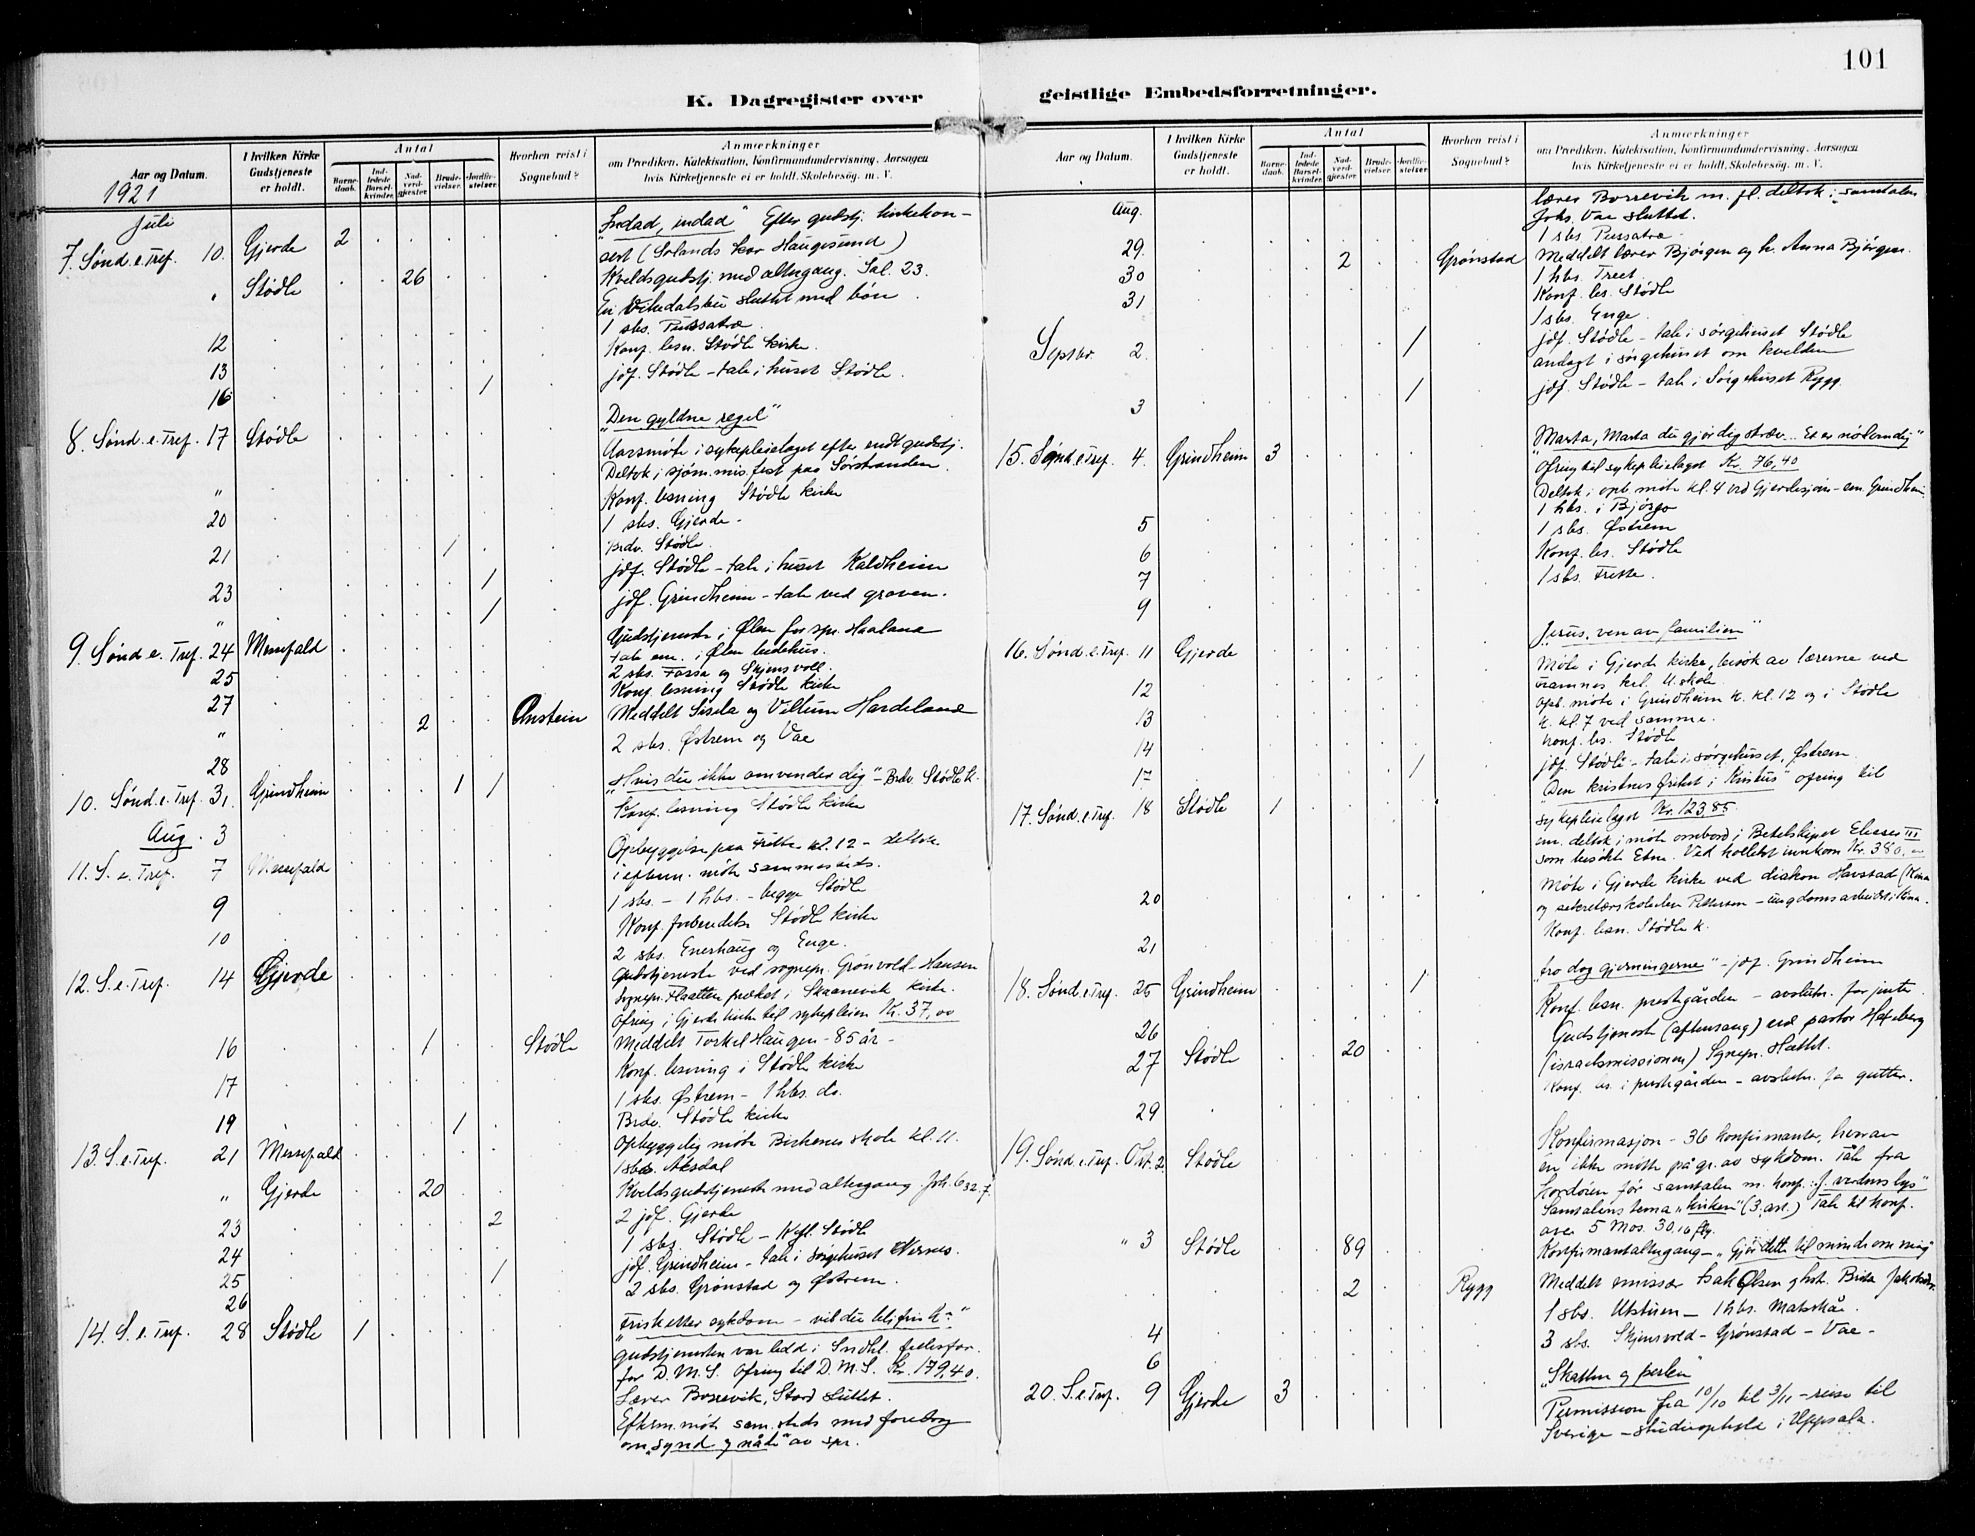 101
K. Dagregister over geistlige Embedsforretninger.
Aar og Datum.
I hvilken Kirke Gudstjeneste er holdt.
Antal
Barnedaab.
Indledede Barselkvinder.
Nadverdgjester
Brudevielser.
Jordfæstelser.
Hvorhen reist i Sognebud?
Anmærkninger
om Prædiken, Katekisation, Konfirmandundervisning, Aarsagen
hvis Kirketjeneste ei er holdt, Skolebesøg, m. V.
1921
Juli
7. Sønd. e. Tref. 10. Gjerde 2 "Indad, indad" Efter gudstj. kirkekon-
sert (Solands kor Haugesund)
" Stødle 26 Kveldsgudstj. med altergang. Sal. 23.
En Vikedalsbu sluttet med bøn.
1 sbs. Pussatræ.
12 Konf. lesn. Stødle kirke.
13 jdf. Stødle - tale i huset Stødle. 1
16
8. Sønd. e. Tref. 17 Stødle "Den gyldne regel"
Aarsmøte i sykepleielaget efter endt gudstj.
" Deltok i sjøm. mis. fest paa Sørstranden.
20 Konf. lesning Stødle kirke
1 sbs. Gjerde.
21 1 Brdv. Stødle.
23 1 jdf. Stødle - tale i huset Kaldheim
" 1 jdf. Grindheim - tale ved graven.
9. Sønd. e. Tref. 24 Messefald Gudstjeneste i Ølen for spr. Haaland
tale em. i Ølen bedehus.
25 2 sbs. Fosse og Skjensvoll.
27 Konf. lesning Stødle kirke
" 2 Ønstein Meddelt Sisela og Villum Hardeland
28 2 sbs. Østrem og Vae
10. Sønd. e. Tref. 31. Grindheim 1 1 "Hvis du ikke omvender dig" - Brdv. Stødle k.
Aug. 3 Konf. lesning Stødle kirke
11. S. e. Tref. 7 Messefald Opbyggelse paa Frette kl. 12 - deltok
i efterm. møte sammesteds.
9 1 sbs. - 1 hbs. - begge Stødle
10 Konf. forberedelse Stødle kirke
2 sbs. Enerhaug og Enge.
12. S. e. Tref. 14 Gjerde Gudstjeneste ved sognepr. Grønvold-Hansen
Sognepr. Flaatten præket i Skaanevik kirke.
Ofring i Gjerde kirke til sykepleien Kr. 37,00
16 1 Stødle Meddelt Torkel Haugen - 85 år -
17 Konf. lesning i Stødle kirke
1 sbs. Østrem - 1 hbs. do.
19 1 Brdv. Stødle kirke
13. S. e. Tref. 21 Messefald Opbyggelig møte Birkenes skole kl. 11.
1 sbs. Aksdal
" Gjerde 20 Kveldsgudstjeneste med altergang. Joh. 6 32. 7.
23 2 2 jdf. Gjerde
24 1 sbs. Stødle - Stødle
25 1 jdf. Grindheim - tale i sørgehuset Nernes.
26 2 sbs. Grønstad og Østrem.
14. S. e. Tref. 28 Stødle 1 "Frisk etter sykdom - vil du bli frisk?"
Gudstjenesten var ledd i Sndhl. fellesfor.
for D. M. S. Ofring til D. M. S. Kr. 179,40.
Lærer Bosrevik, Stord sluttet.
Efterm. møte sam. steds med foredrag
om "synd og nåde" av spr.
Aar og Datum.
I hvilken Kirke Gudstjeneste er holdt.
Antal
Barnedaab.
Indledede Barselkvinder.
Nadverdgjester
Brudevielser.
Jordfæstelser.
Hvorhen reist i Sognebud?
Anmærkninger
om Prædiken, Katekisation, Konfirmandundervisning, Aarsagen
hvis Kirketjeneste ei er holdt, Skolebesøg, m. V.
Aug. lærer Bosrevik m. fl. deltok i samtalen
Johs. Vae sluttet.
1 sbs Pussatræ.
29. 2 Grønstad Meddelt lærer Bjørgen og k. Anna Bjørgen.
30 1 hbs. Treet
31 Konf. les. Stødle
1 sbs. Enge.
Septbr 2. 1 jdf. Stødle - tale i sørgehuset Stødle
andagt i sørgehuset om kvelden
3 1 jdf. Stødle - tale i Sørgehuset Rygg.
15. Sønd. e. Tref. 4. Grindheim 3 "Marta, Marta du gjør dig strev... Et er nødvendig"
Ofring til sykepleielaget Kr. 76,40
Deltok i opb. møte kl. 4 ved Gjerdesjøen - em. Grindheim
1 hbs. i Bjørgo
5 1 sbs. Østrem
6 Konf. les. Stødle
7 1 sbs. Frette.
9
16. Sønd. e. Tref. 11 Gjerde "Jesus, ven av familien"
12 Møte i Gjerde kirke, besøk av lærerne ved
Framnes krl. U. skole.
13 Opb. møte i Grindheim k. kl. 12 og i Stødle
k. kl. 7 ved samme.
14 Konf. les. Stødle
17 1 jdf. Stødle - tale i sørgehuset, Østrem
17. Sønd. e. Tref. 18 Stødle 1 "Den kristnes frihet i Kristus" ofring til
sykepleielaget Kr. 123,85.
em. deltok i møte ombord i Betelskipet Elieser III
som besøkte Etne. Ved kollekt innkom Kr. 380,-
20 Møte i Gjerde kirke ved diakon Havstad (Kina
og sekretær Pettersen - ungdomsarbeid i Kina.
21 Konf. lesn. Stødle k.
18. Sønd. e. Tref. 25 Grindheim 1 "Tro dog gjerningerne" - jdf. Grindheim
26 Konf. lesn. prestegården - avslutn. for jenter.
27 Stødle 20 Gudstjeneste (aftensang) ved pastor
(israelsmissionen) Sognepr. sluttet.
29 Konf. les. i prestegården - avslutn. for gutter.
19. Sønd. e. Tref. Okt. 2. Stødle Konfirmasjon - 36 konfirmanter, hvorav
en ikke møtte på gr. av sykdom. Tale fra
kordøren før samtalen m. konf.: "J. verdens lys"
Samtalens tema "kirken" (3. art.) Tale til konf.
over 5 Mos. 30.16 flg.
" 3 Stødle 89 Konfirmantaltergang - "Gjør dette til minde om mig"
2 Rygg Meddelt emissær Isak Olsen g hst. Brita Jakobsdtr.
1 sbs. Utstuen - 1 hbs. Matskår.
4 3 sbs. Skjensvold - Grønstad - Vae -
6
20. S. e. Tref. 9 Gjerde 3 "Skatten og perlen"
Permission fra 10/10 til 3/11 - reise til
Sverige - studieophold i Uppsala.